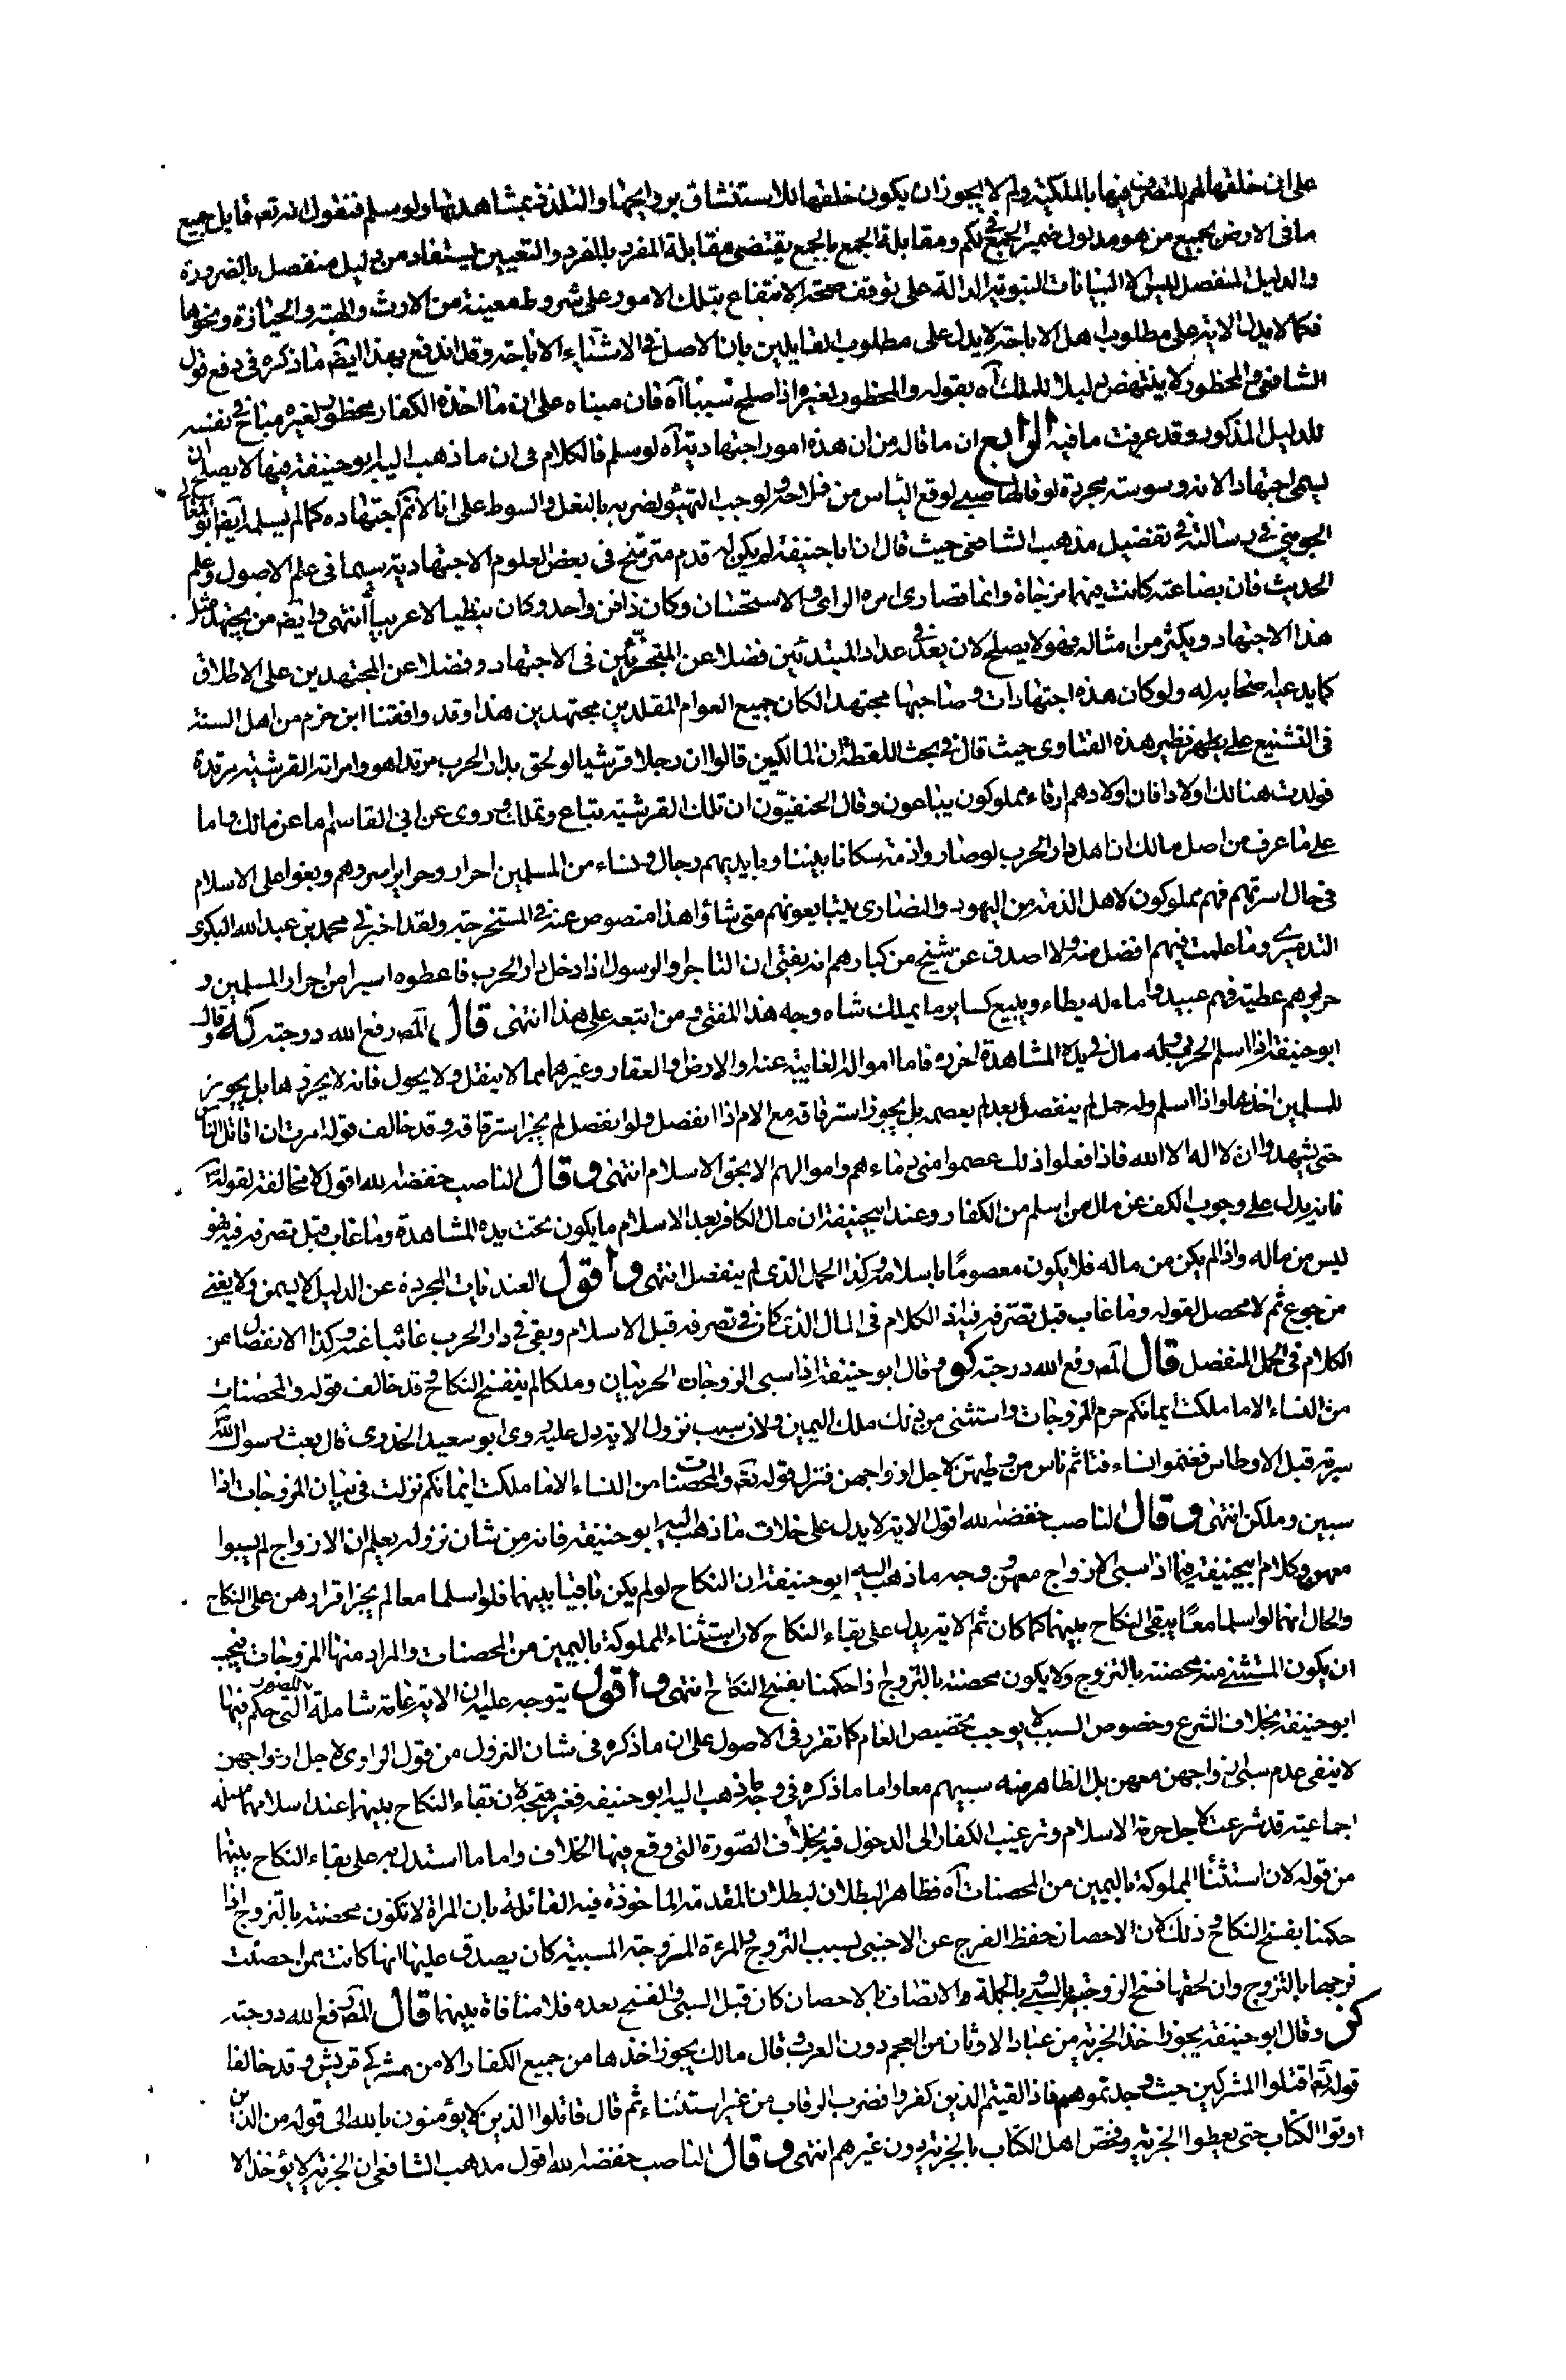 على ان خلقها لهم للتصرف فيها بالملكية ولم لا يجوز ان يكون خلقها للاستنشاق بروايحها والتلذذ بمشاهدتها ولو سلم فنقول انه تعه قابل جميع
ما في الارض بجميع من هو مدلول ضمير الجمع في لكم ومقابلة الجمع بالجمع يقتضى مقابلة المفرد بالمفرد والتعيين يستفاد من دليل منفصل بالضرورة
والدليل المنفصل ليس الا البيانات النبوية الدالة على توقف صحة الانتفاع بتلك الامور على شروط معينة من الارث والهبة والحيازة ونحوها
فكما لا يدل الاية على مطلوب اهل الاباحة لا يدل على مطلوب القايلين بان الاصل في الاشياء الاباحة وقد اندفع بهذا ايضه ما ذكره في دفع قول
الشافعي والمحظور لا ينتهض دليلا للملك آه بقوله والمحظور لغيره اذا صلح سببا آه فان مبناه على ان ما اخذه الكفار محظور لغيره مباح في نفسه
للدليل المذكور وقد عرفت ما فيه الرابع ان ما قاله من ان هذه امور اجتهادية آه لو سلم فالكلام في ان ما ذهب اليه ابو حنيفة فيها لا يصلح ان
يسمى اجتهادا لانه وسوسة مجردة لو قالها صبي لوقع الياس من فلاحه ولوجب التهيؤ لضربه بالنعل والسوط على انا لا نم اجتهاده كما لم يسلمه ايضا ابو المعالي
الجويني في رسالته في تفضيل مذهب الشافعي حيث قال ان ابا حنيفة لم يكن له قدم مترسخ في بعض العلوم الاجتهادية سيما في علم الاصول وعلم
الحديث فان بضاعته كانت فيهما مزجاة وانما قصارى امره الراى والاستحسان وكان ذا فن واحد وكان نبطيا لا عربيا انتهى وايضه من يجتهد مثل
هذا الاجتهاد ويكثر من امثاله فهو لا يصلح لان يعد في عداد المبتدئين فضلا عن المتجزئين في الاجتهاد وفضلا عن المجتهدين على الاطلاق
كما يدعيه صحابه له ولو كان هذه اجتهادات وصاحبها مجتهدا لكان جميع العوام المقلدين مجتهدين هذا وقد وافقنا ابن حزم من اهل السنة
في التشنيع على نظير هذه الفتاوى حيث قال في بحث اللقطة ان المالكيين قالوا ان رجلا قرشيا لو لحق بدار الحرب مرتدا هو وامراته القرشية مرتدة
فولدت هنالك اولادا فان اولادهم ارقاء مملوكون يباعون وقال الحنفيون ان تلك القرشية تباع وتملك وروى عن ابي القاسم اما عن مالك واما
على ما عرف من اصل مالك ان اهل دار الحرب لو صاروا ذمة سكانا بيننا وبايديهم رجال ونساء من المسلمين احرار وحراير اسروهم وبقوا على الاسلام
في حال اسرتهم فهم مملوكون لاهل الذمة من اليهود والنصارى يتبايعونهم متى شاؤا هذا منصوص عنه في المستخرجة ولقد اخبرني محمد بن عبد الله البكري
التدميري وما علمت فيهم افضل منه ولا اصدق عن شيخ من كبارهم انه يفتي ان التاجر او الرسول اذا دخل دار الحرب فاعطوه اسيرا من احرار المسلمين و
حرايرهم عطية فهم عبيد واماء له يطاء ويبيع كساير ما يملك شاه وجه هذا المفتى ومن اتبعه على هذا انتهى قال المصه رفع الله درجته كه وقال
ابو حنيفة اذا اسلم الحربي وله مال في يده المشاهدة احرزه فاما امواله الغايبة عنه والارض والعقار وغيرهما مما لا ينقل ولا يحول فانه لا يحرزها بل يجوز
للمسلمين اخذها واذا اسلم وله حمل لم ينفصل بعد لم يعصمه بل يجوز استرقاقه مع الام اذا انفصل ولو انفصل لم يجز استرقاقه وقد خالف قوله امرت ان اقاتل الناس
حتى يشهدوا ان لا اله الا الله فاذا فعلوا ذلك عصموا مني دماءهم واموالهم الا بحق الاسلام انتهى وقال الناصب خفضه الله اقول لا مخالفة لقوله
فانه يدل على وجوب الكف عن مال من اسلم من الكفار وعند ابيحنيفة ان مال الكافر بعد الاسلام ما يكون تحت يده المشاهدة وما غاب قبل تصرفه فيه فهو
ليس من ماله واذا لم يكن من ماله فلا يكون معصومًا باسلامه وكذا الحمل الذي لم ينفصل انتهى واقول العنديات المجردة عن الدليل لا يسمن ولا يغني
من جوع ثم لا محصل لقوله وما غاب قبل تصرفه فيه اذ الكلام في المال الذي كان في تصرفه قبل الاسلام وبقي في دار الحرب غائبا عنه وكذا الانفصال من
الكلام في الحمل المنفصل قال المصه رفع الله درجته كو وقال ابو حنيفة اذا سبى الزوجان الحربيان وملكا لم ينفسخ النكاح وقد خالف قوله والمحصنات
من النساء الا ما ملكت ايمانكم حرم المزوجات واستثنى من ذلك ملك اليمين ولان سبب نزول الاية دل عليه روى ابو سعيد الخدري قال بعث رسول الله
سرية قبل الاوطاس فغنموا نساء فتاثم ناس من وطيهن لاجل ازواجهن فنزل قوله تعه والمحصنات من النساء الا ما ملكت ايمانكم نزلت في بيان المزوجات اذا
سبين وملكن انتهى وقال الناصب خفضه الله اقول الاية لا يدل على خلاف ما ذهب اليه ابو حنيفة فانه من شان نزوله يعلم ان الازواج لم يسبوا
معهن وكلام ابيحنيفة فيما اذا سبى الازواج معهن ووجه ما ذهب اليه ابو حنيفة ان النكاح لو لم يكن باقيا بينهما فلو اسلما معا لم يجز اقرارهن على النكاح
والحال انهما لو اسلما معًا يبقى النكاح بينهما كما كان ثم الاية يدل على بقاء النكاح لان استثناء المملوكة باليمين من المحصنات والمراد منها المزوجات فيجب
ان يكون المستثنى منه محصنة بالتزوج ولا يكون محصنة بالتزوج اذا حكمنا بفسخ النكاح انتهى واقول يتوجه عليه ان الاية عامة شاملة للصور التي حكم فيها
ابو حنيفة بخلاف الشرع وخصوص السبب لا يوجب تخصيص العام كما تقرر في الاصول على ان ما ذكره في شان النزول من قول الراوي لاجل ازواجهن
لا ينفى عدم سبى ازواجهن معهن بل الظاهر منه سبيهم معا واما ما ذكره في وجه ما ذهب اليه ابو حنيفه فغير متجه لان بقاء النكاح بينهما عند اسلامهما مسئلة
اجماعية قد شرعت لاجل حرمة الاسلام وترغيب الكفار الى الدخول فيه بخلاف الصورة التي وقع فيها الخلاف واما ما استدل به على بقاء النكاح بينهما
من قوله لان استثناء المملوكة باليمين من المحصنات آه فظاهر البطلان لبطلان المقدمة الماخوذة فيه القائلة بان المراة لا تكون محصنة بالتزوج اذا
حكمنا بفسخ النكاح وذلك لان الاحصان حفظ الفرج عن الاجنبي بسبب التزوج والمرءة المزوجة المسبية كان يصدق عليها انها كانت ممن احصنت
فرجها بالتزوج وان لحقها فسخ الزوجية بالسبي وبالجملة الاتصاف بالاحصان كان قبل السبى والفسخ بعده فلا منافاة بينهما قال المصه رفع الله درجته
كز وقال ابو حنيفة يجوز اخذ الجزية من عباد الاوثان من العجم دون العرب وقال مالك يجوز اخذها من جميع الكفار الا من مشركي قريش وقد خالفا
قوله تعه اقتلوا المشركين حيث وجدتموهم فاذا لقيتم الذين كفروا فضرب الرقاب من غير استثناء ثم قال قاتلوا الذين لا يؤمنون بالله الى قوله من الذين
اوتوا الكتاب حتى يعطوا الجزية وخص اهل الكتاب بالجزية دون غيرهم انتهى وقال الناصب خفضه الله اقول مذهب الشافعي ان الجزية لا يؤخذ الا